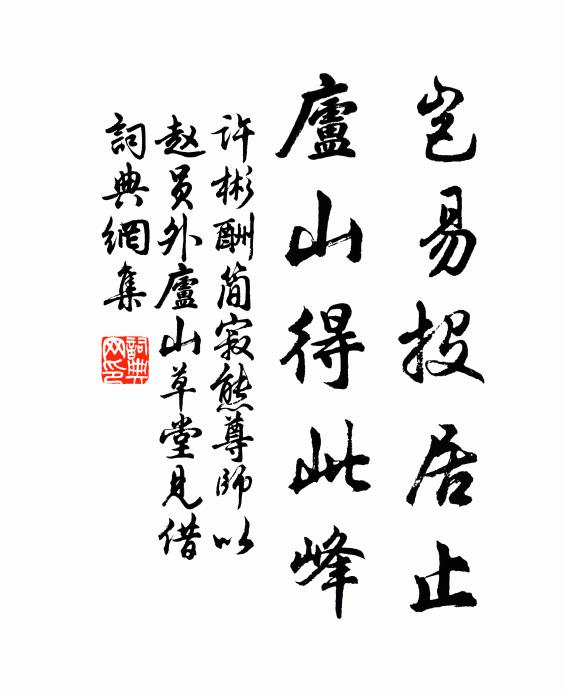 豈易投居止
廬山得此峰
许彬酬简寂熊尊師以
赵员外廬山草堂见借
詞典網集
詞典网印